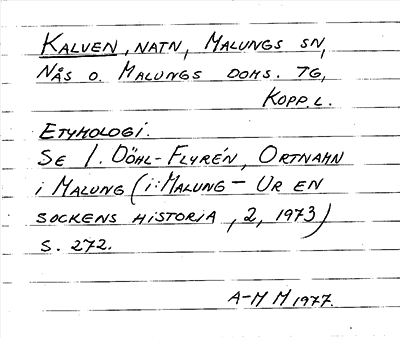 KALVEN, NATN, MALUNGS SN,
NÅS O. MALUNGS DOMS. TG,
KOPP. L.
ETYMOLOGI.
SE I. DÖHL-FLYRÉN, ORTNAMN
I MALUNG (I: MALUNG – UR EN
SOCKENS HISTORIA, 2, 1973)
S. 272.
A-M M 1977.